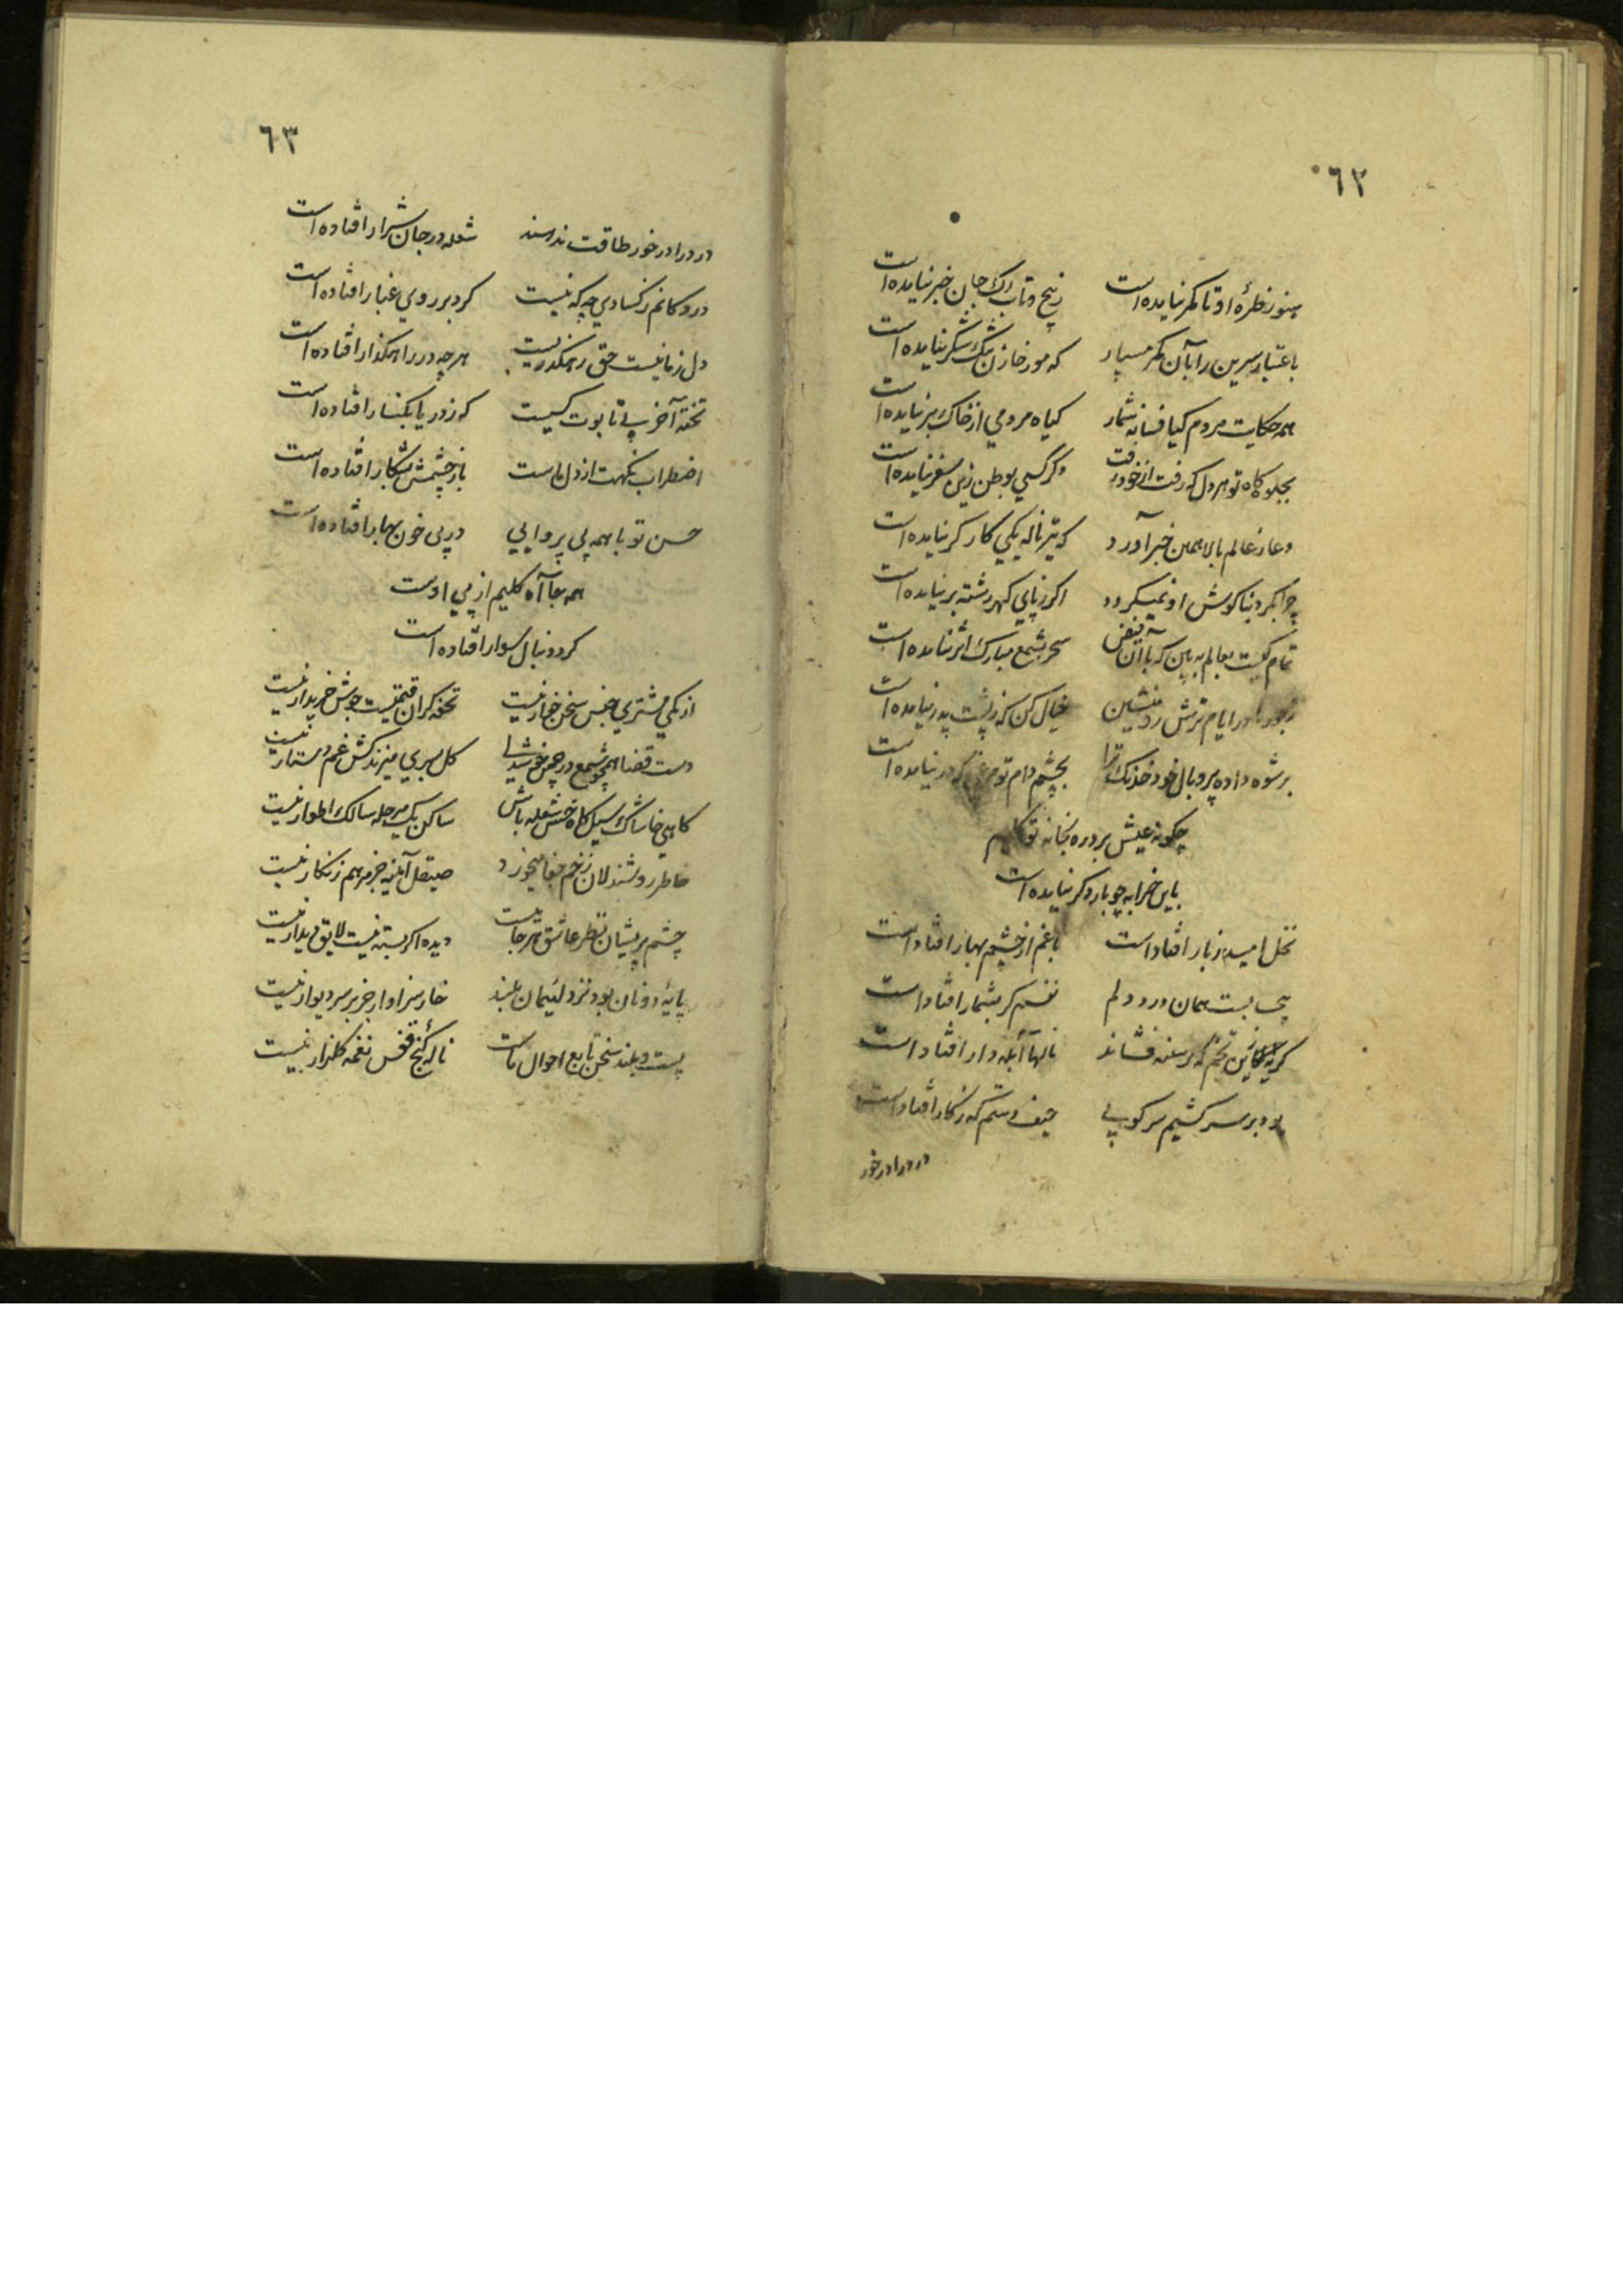 ٦٢
هنوز طره او تا کمر نیامده است پیچ و تاب رک جان خبر نیامده است
باعتبار سرین را بآن کمر مسپار که مور خازن تنک شکر نیامده است
همه حکایت مردم کیا فسانه شمار کیاه مردمی از خاک بر نیامده است
بجلوه کاه تو هر دل که رفت از خود رفت دکر کسی بوطن زین سفر نیامده است
دعا ز عالم بالا همین خبر آورد که تیر ناله یکی کارکر نیامده است
چرا بکرد بناکوش او نمیکردد اکر ز پای کهر رشته بر نیامده است
تمام کیست بعالم به بین که با آن فیض سحر بشمع مبارک اثر نیامده است
ایام ترش رو منشین خیال کن که ز پشت پدر نیامده است
برشوه داده پر و بال خود خدنک ترا بچشم دام تو مرغی که در نیامده است
چکونه عیش برد ره بخانه تو کلیم
باین خرابه چو بار دکر نیامده است
نخل امید ز بار افتاد است باغم از چشم بهار افتاد است
بست همان درد دلم نفسم کر بشمار افتاد است
کریه تخم که بر سینه فشاند نالها آبله دار افتاد است
بود بر سر کشیم سرکوبی حیف دستم که ز کار افتاد است
درد را در خور
٦٣
درد را در خور طاقت ندهند شعله در جان شرار افتاده است
در دکانم ز کسادی چه که نیست کرد بر روی غبار افتاده است
دل ز ما نیست حق رهکذریست هر چه در راهکذار افتاده است
تخته آخر پی تابوت کیست که ز دریا بکنار افتاده است
اضطراب نکهت از دل ماست باز چشمش بشکار افتاده است
حسن تو با همه بی پروایی در پی خون بهار افتاده است
همه جا آه کلیم از پی اوست
کرد دنبال سوار افتاده است
از یکی مشتری جنس سخن خوار نیست تحفه کران قیمتیست جوش خریدار نیست
دست قضا همچو شمع در چمن خوشدلی کل بسری میزند کش غم دستار نیست
کاهی خاشاک سیل کاه خس شعله باش ساکن یک مرحله سالک اطوار نیست
خاطر روشندلان زخم جفا میخورد صیقل آیینه جز مرهم زنکار نیست
چشم پریشان نظر عاشق هر جاییست دیده اکر بسته نیست لایق دیدار نیست
پایه دونان بود نزد لئیمان بلند خار سزاوار جز بر سر دیوار نیست
پست و بلند سخن تابع احوال ماست ناله کنج قفس نغمه کلزار نیست